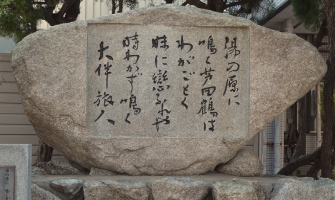 湯の原に
鳴く芦田鶴は
わがごとく
妹に恋ふれや
時わかず鳴く
大伴旅人